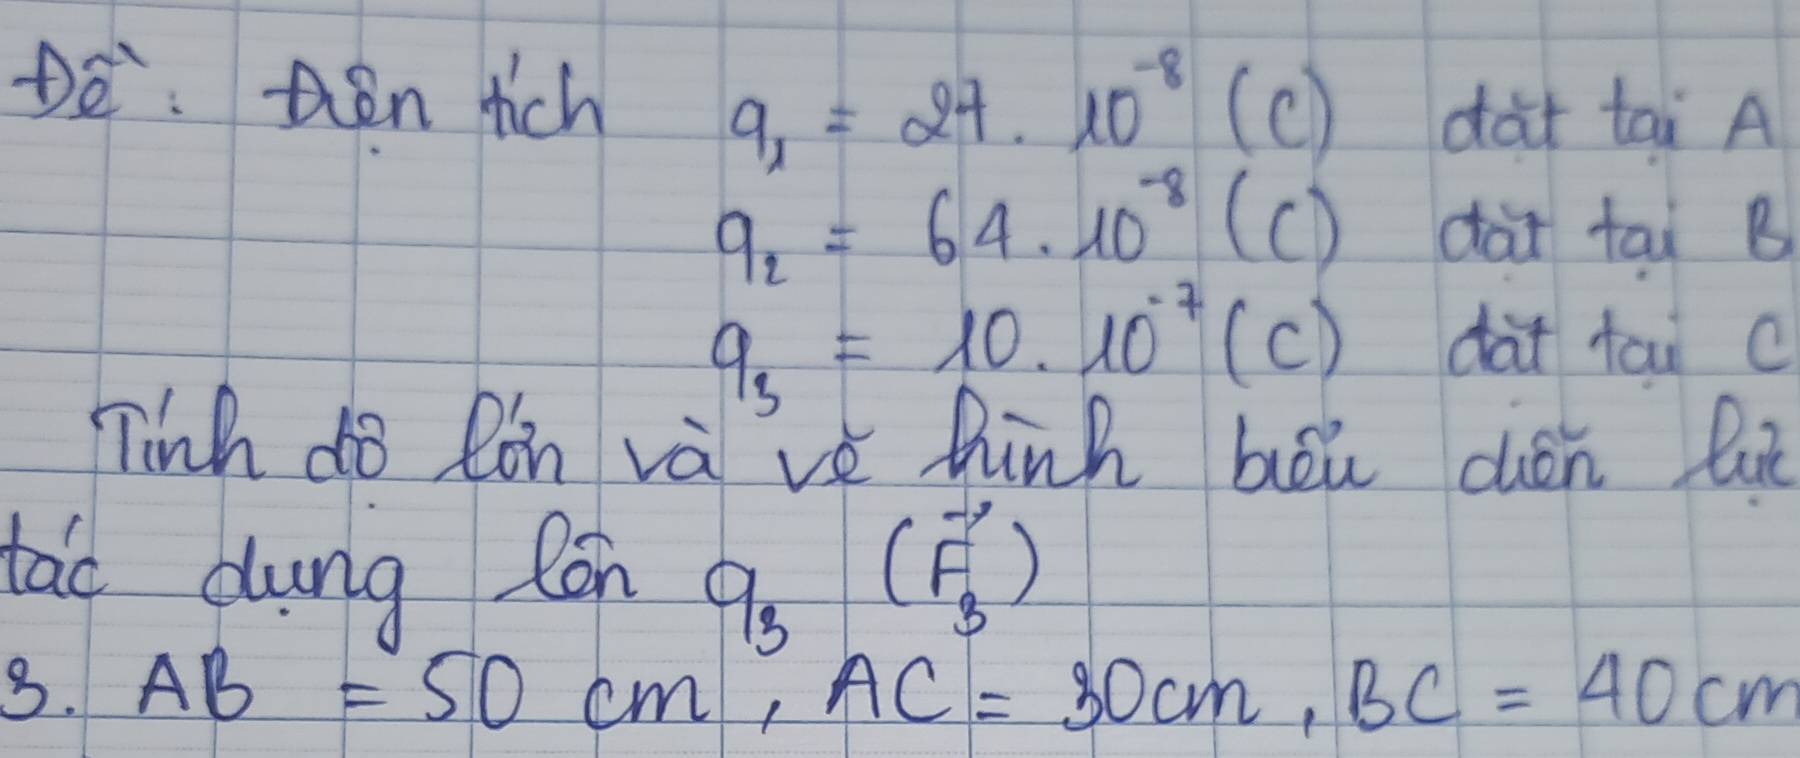 Đề: Điện tích q₁ = 27. 10⁻⁸ (C) đặt tại A
q₂ = 64. 10⁻⁸ (C) đặt tại B
q₃ = 10. 10⁻⁷ (C) đặt tại C
Tính độ lớn và vẽ hình biểu diễn lực
tác dụng lên q₃ (F⃗₃)
3. AB = 50 cm, AC = 30cm, BC = 40 cm